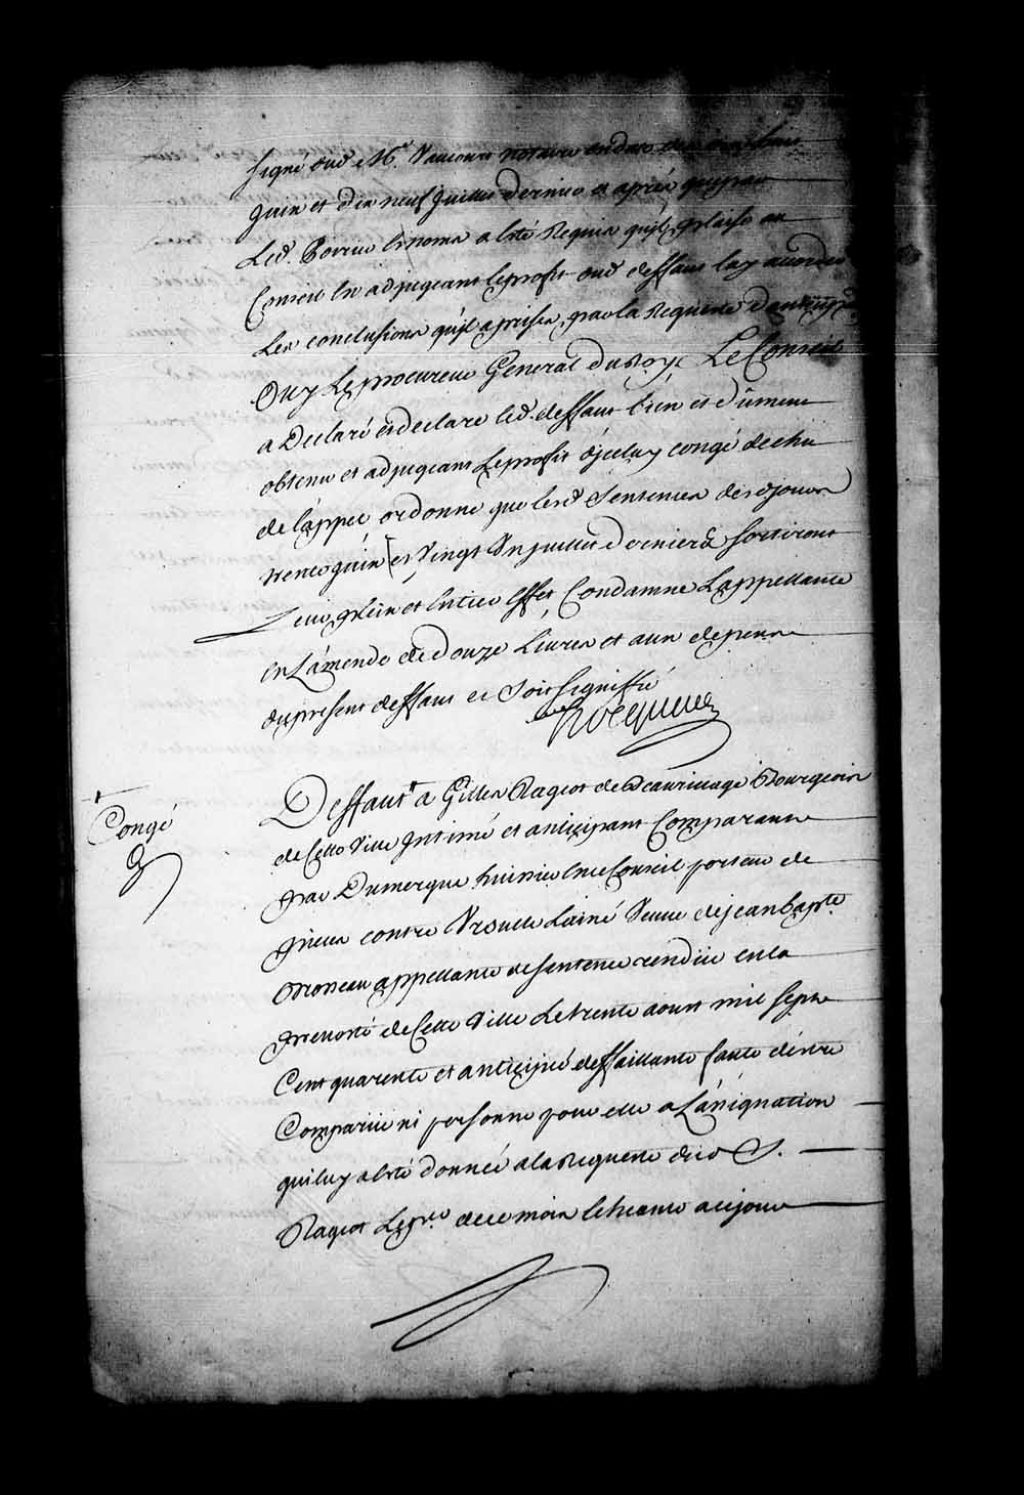 signé dud. Me. Saucour notaire en date des
Juin et dix neuf Juillet dernier et après que par
Led. Perrin es noms a esté Requis qu'il plaise au
Conseil En adjugeant le profit dud. deffaut luy accorder
Les conclusions qu'il a prises, par la Requeste
Ouy Le procureur General du Roy, Le Conseil
a Declaré et declare led. deffaut bien et düment
obtenu et adjugeant Le profit d'jceluy congé dechu
de l'appel, ordonne que lesd. Sentences desd. jours
trente juin et Vingt Un juillet derniers sortiront
Leur plein et Entier Effet, Condamne L'appellante
en L'amende de douze Livres et aux depens
du present deffaut et Soit signiffié
hocquart
Congé
Deffaut a Gilles Rageot de Beaurivage Bourgeois
de Cette Ville Intimé et anticipant Comparant
par Dumergue huissier En ce Conseil porteur de
pieces contre Ursulle Lainé Veuve de jean bapte.
moreau appellante de sentence rendüe en la
prevosté de Cette Ville Le trente aoust mil sept
Cent quarente et anticipée deffaillante faute d'estre
Comparüe ni personne pour elle a L'assignation
qui luy a esté donnée a la Requeste dud. S.
Rageot Le pr. de ce mois le trente a ce jour